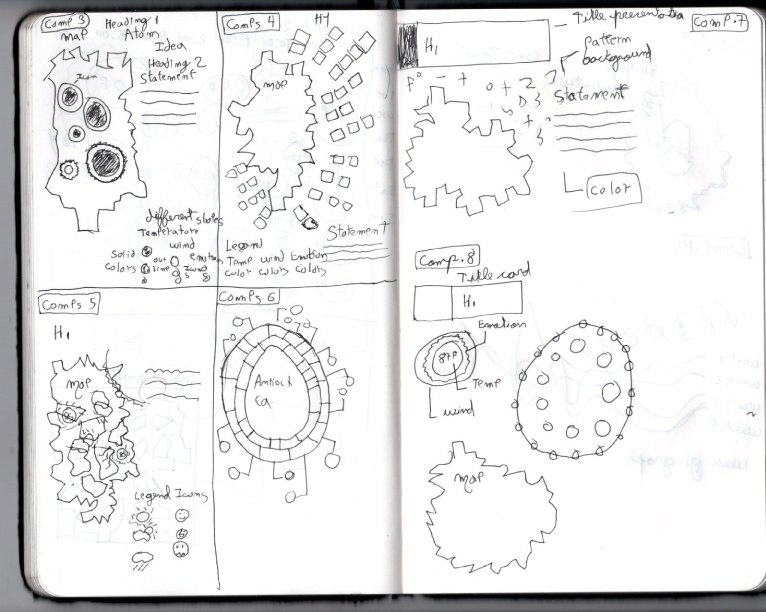 Comp 3
Heading 1
map
Atom
Idea
Heading 2
Statement
Icon
different styles
Temperature
wind
Solid
out
emotion
colors
line
Icons
Comps 4
H1
map
Statement
Legend
Temp wind Emotion
color colors colors
Comps 5
H1
map
Legend Icons
Comps 6
Antioch
Ca
Comp.7
Title presentation
H1
pattern
background
F° - + 0 + 2 7
5 D 3
+
3
Statement
color
Comp.8
Title card
H1
Emotion
87F
Temp
wind
map